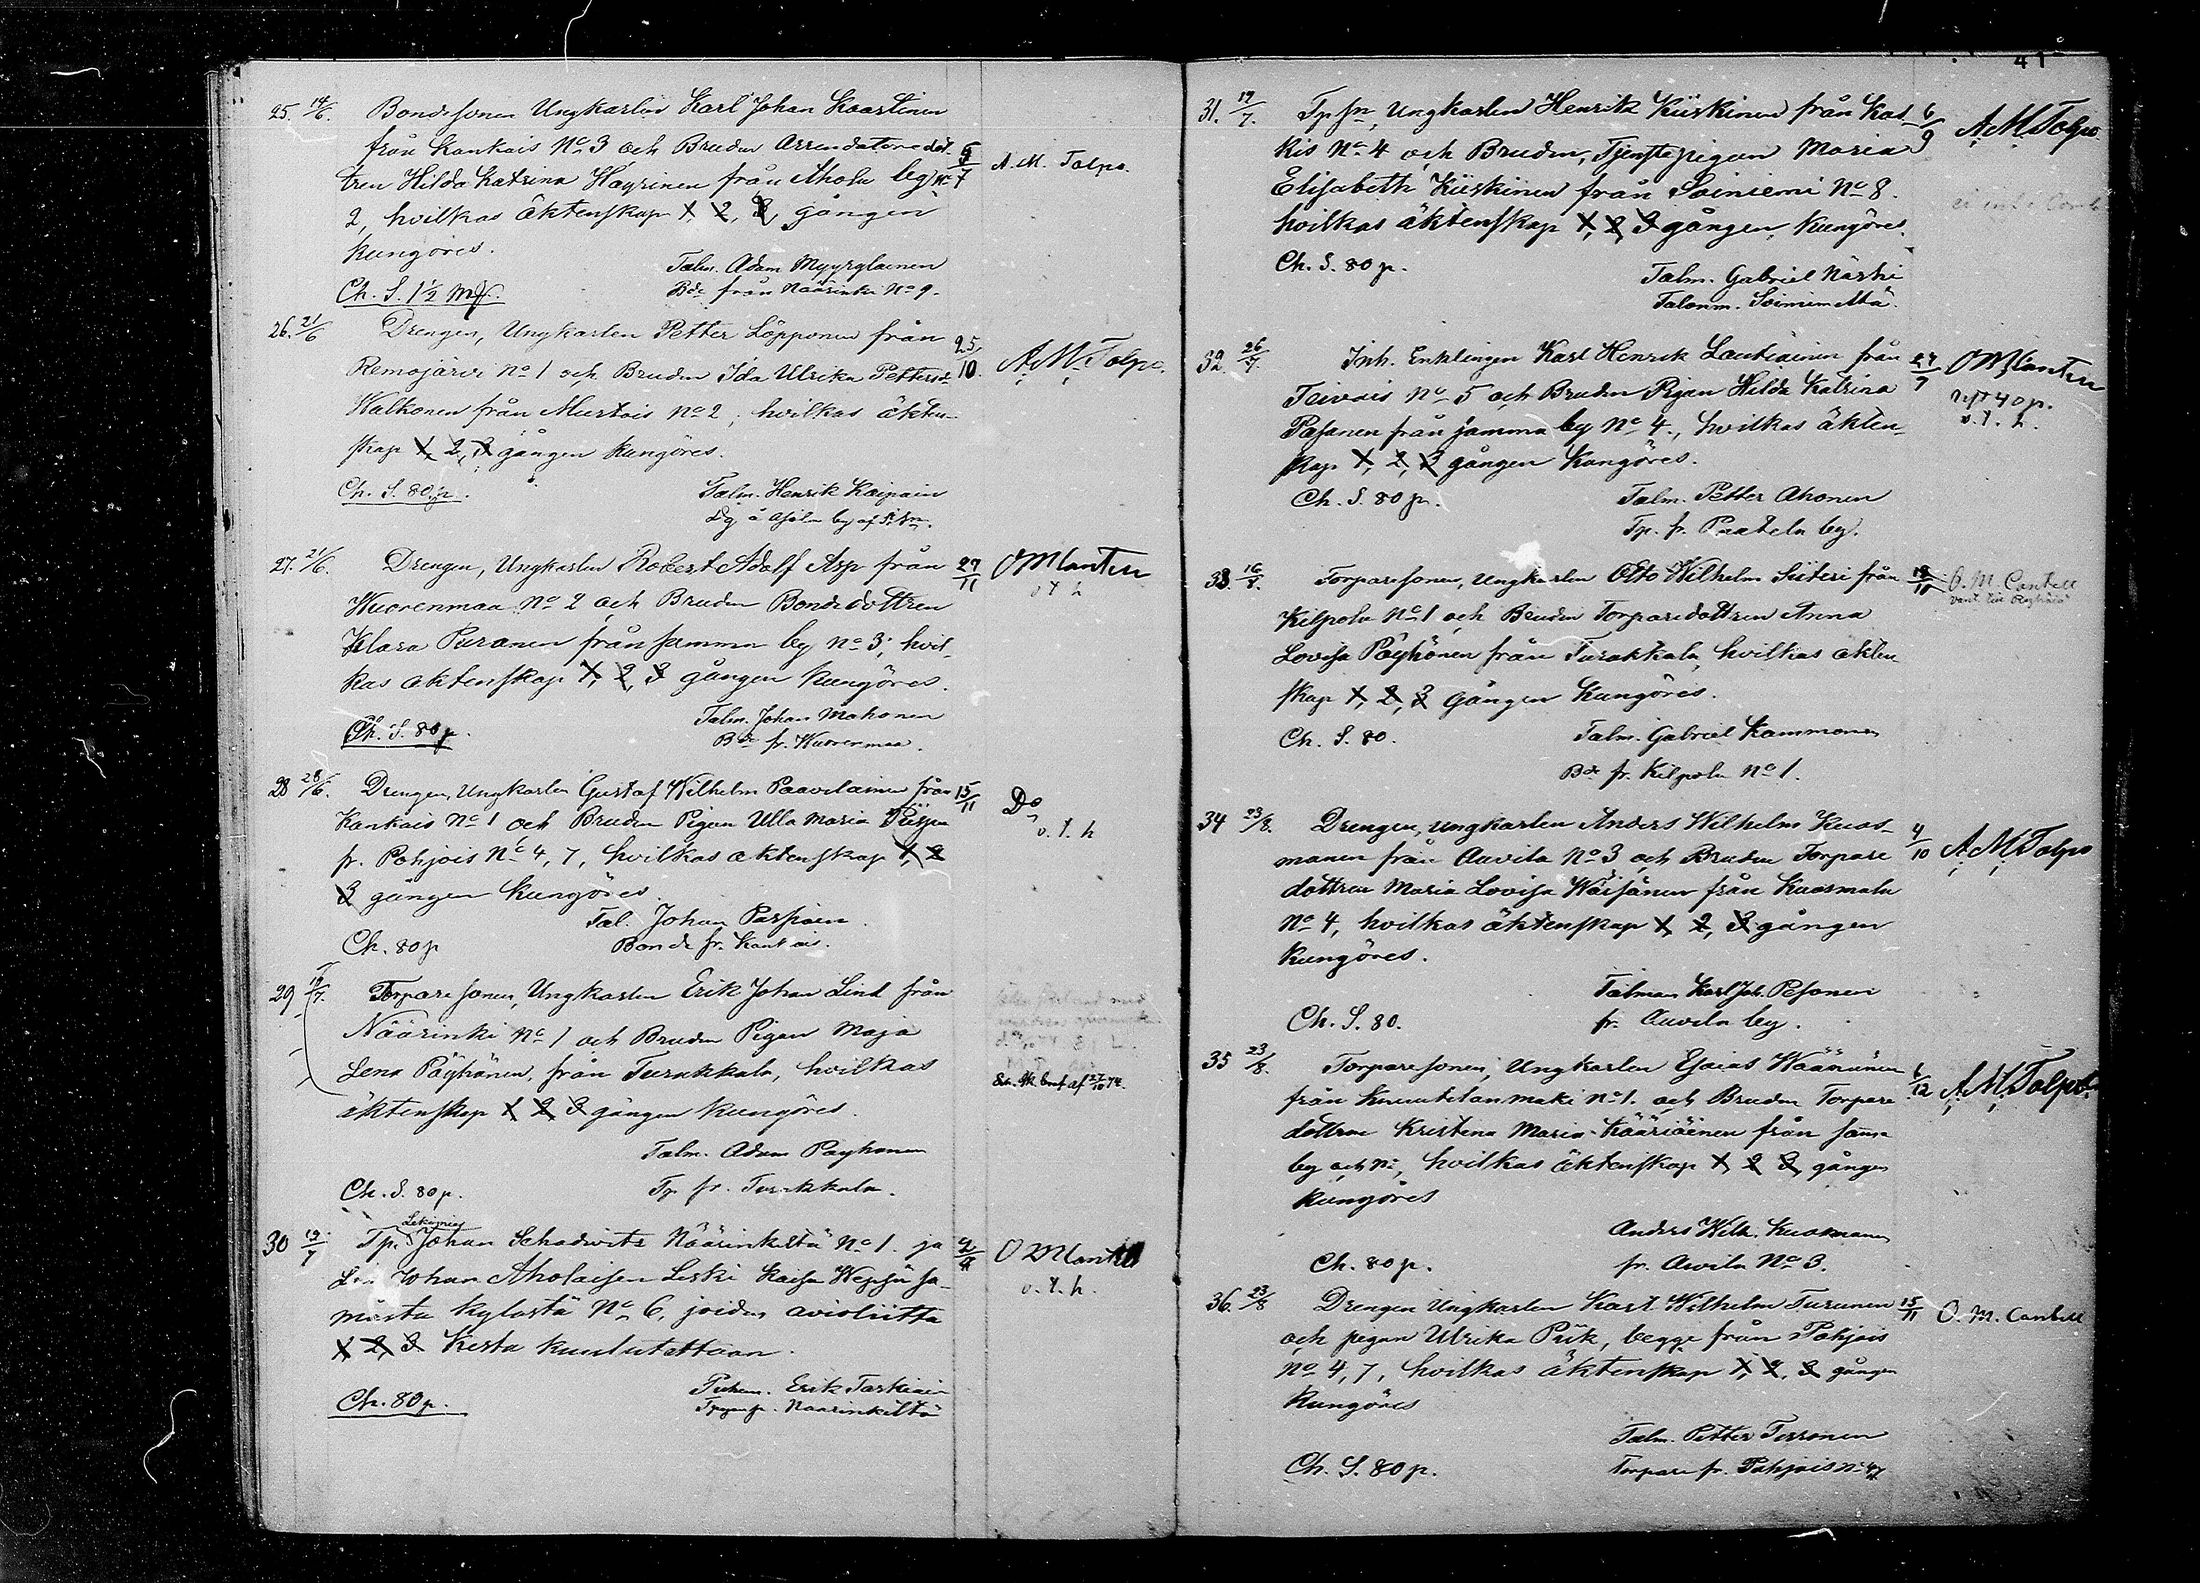 41
25. 14/6. Bondesonen Ungkarlen Karl Johan Kaartinen
från Kankais No 3 och Bruden Arrendatorsdot-
tren Hilda Katrina Häyrinen från Ahola by No
2, hvilkas äktenskap 1, 2, 3, gången
kungöres.
5/7 A. M. Tolpo.
Talm. Adam Myyryläinen
Bde från Näärinki No 9.
Ch. S. 1 1/2 mk.
26. 21/6 Drengen, Ungkarlen Petter Löpponen från
Remojärvi No 1 och Bruden Ida Ulrika Pettersdr
Walkonen från Murtois No 2, hvilkas äkten-
skap 1, 2, 3 gången kungöres.
25/10. A. M. Tolpo.
Ch. S. 80 p.
Talm. Henrik Kaipain
Dg å by af
27. 21/6. Drengen, Ungkarlen Robert Adolf Asp från
Wuorenmaa No 2 och Bruden Bondedottren
Klara Puranen från samma by No 3, hvil-
kas äktenskap 1, 2, 3 gången kungöres.
29/11 O M Cantell
v. t. h
Talm. Johan Mahonen
Bde fr. Wuorenmaa.
Ch. S. 80 p.
28 28/6. Drengen, Ungkarlen Gustaf Wilhelm Paavilainen från
Kankais No 1 och Bruden Pigan Ulla Maria
fr. Pohjois No 4, 7, hvilkas äktenskap 1, 2
3 gången kungöres.
15/11 Do
v. t. h
Tal. Johan Parsiain
Bonde fr. Kankais.
Ch. 80 p
29 19/7. Torparesonen, Ungkarlen Erik Johan Lind från
Näärinki No 1 och Bruden Pigan Maja
Lena Pöyhönen, från Turakkala, hvilkas
äktenskap 1 2 3 gången kungöres.
bref af 27/10 74.
Talm. Adam Poyhonen
Tp. fr. Turakkala.
Ch. S. 80 p.
30 19/7 Tpr Leskimies Johan Schadewitz Näärinkiltä No 1. ja
Johan Aholaisen Leski Kaisa Wepsä sa-
masta kylästä No 6, joiden avioliitto
1, 2, 3 kerta kuulutettaan.
2/8 O M Cantell
v. t. h.
Puhem. Erik Tarkiain
Näärinkiltä
Ch. 80 p.
31. 19/7. Tp sn, Ungkarlen Henrik Kiiskinen från Kas-
kis No 4 och Bruden, Tjenstepigan Maria
Elisabeth Kiiskinen från Soiniemi No 8.
hvilkas äktenskap 1, 2, 3 gången kungöres.
6/9 A. M. Tolpo
Ch. S. 80 p.
Talm. Gabriel Närhi
Talonm. Soiniemeltä.
32. 26/7. Inh. Enklingen Karl Henrik Lautiainen från
Teivais No 5 och Bruden Pigan Hilda Katrina
Pasanen från samma by No 4., hvilkas äkten-
skap 1, 2, 3 gången kungöres.
O M Cantell
40 p.
v. t. h.
Ch. S. 80 p.
Talm. Petter Ahonen
Tp. fr. Paatela by.
33. 16/8. Torparesonen, Ungkarlen Otto Wilhelm Siiteri från
Kilpola No 1 och Bruden Torparedottren Anna
Lovisa Pöyhönen från Turakkala, hvilkas äkten
skap 1, 2, 3 gången kungöres.
O. M. Cantell
Ch. S. 80.
Talm. Gabriel Kammonen
Bde fr. Kilpola No 1.
34 23/8. Drengen, Ungkarlen Anders Wilhelm Kuos-
manen från Auvila No 3 och Bruden Torpare
dottren Maria Lovisa Wäisänen från Kuosmala
No 4, hvilkas äktenskap 1, 2, 3 gången
kungöres.
4/10 A. M. Tolpo
Talman Karl Joh. Pesonen
fr. Auvila by.
Ch. S. 80.
35 23/8. Torparesonen, Ungkarlen Esaias Wäänänen
från Knuutilanmäki No 1. och Bruden Torpare
dottren Kristina Maria Kääriäinen från samma
by och No, hvilkas äktenskap 1, 2 3, gången
kungöres
6/12 A. M. Tolpo.
Anders Wilh. Kuosmanen
fr. Auvila No 3.
Ch. 80 p.
36. 23/8 Drengen Ungkarlen Karl Wilhelm Turunen
och pigan Ulrika Piik, begge från Pohjois
No 4, 7, hvilkas äktenskap 1, 2, 3 gången
kungöres
15/11 O. M. Cantell
Talm. Petter Turunen
Torpare fr. Pohjois No 4,7
Ch. S. 80 p.